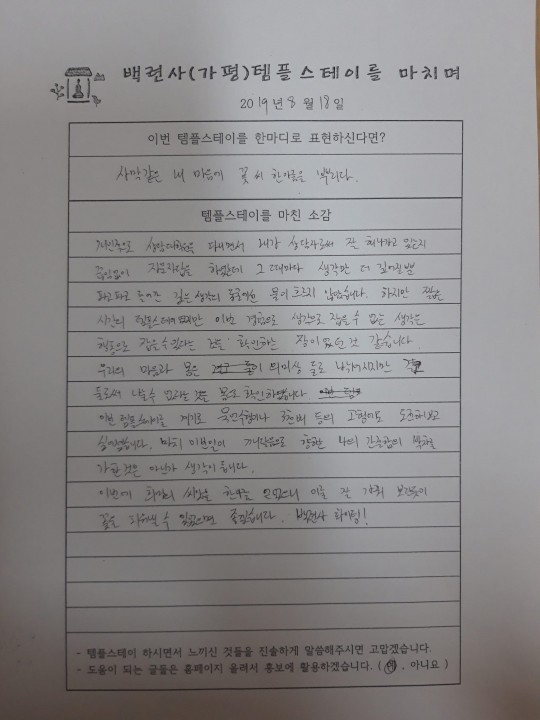 백련사(가평)템플스테이를 마치며
2019년 8월 18일
이번 템플스테이를 한마디로 표현하신다면?
사막같은 내 마음에 꽃씨 한아름을 뿌리다.
템플스테이를 마친 소감
상담대학원을 다니면서 내가 상담자로써 잘 해나가고 있는지
끊임없이 자문자답을 하였는데 그 때마다 생각만 더 깊어질뿐
파고파고 들어간 깊은 생각의 물이 흐르지 않았습니다. 하지만 짧은
시간의 템플스테이 이번 경험으로 생각으로 잡을수 없는 생각은
행동으로 잡을 수 있다는 것을 확인하는 장이 었던것 같습니다.
우리의 마음과 몸은 의미상 둘로 나눠지지만
둘로써 나눌수 없다는 것을 몸도 확인하였습니다
이번 템플스테이를 계기로 묵언수행이나 3천배 등의 고행이도 도전해보고
싶어졌습니다. 마치 이번일이 깨달음으로 향한 나의 간절함의
가한것은 아닌가 생각이 듭니다.
이번에 희망의 씨앗을 한아름 얻었으니 이를 잘 가꿔
꽃을 피워볼 수 있었으면 좋겠습니다. 백련사 화이팅!
- 템플스테이 하시면서 느끼신 것들을 진솔하게 말씀해주시면 고맙겠습니다.
- 도움이 되는 글들은 홈페이지 올려서 홍보에 활용하겠습니다. ( 예 , 아니요 )